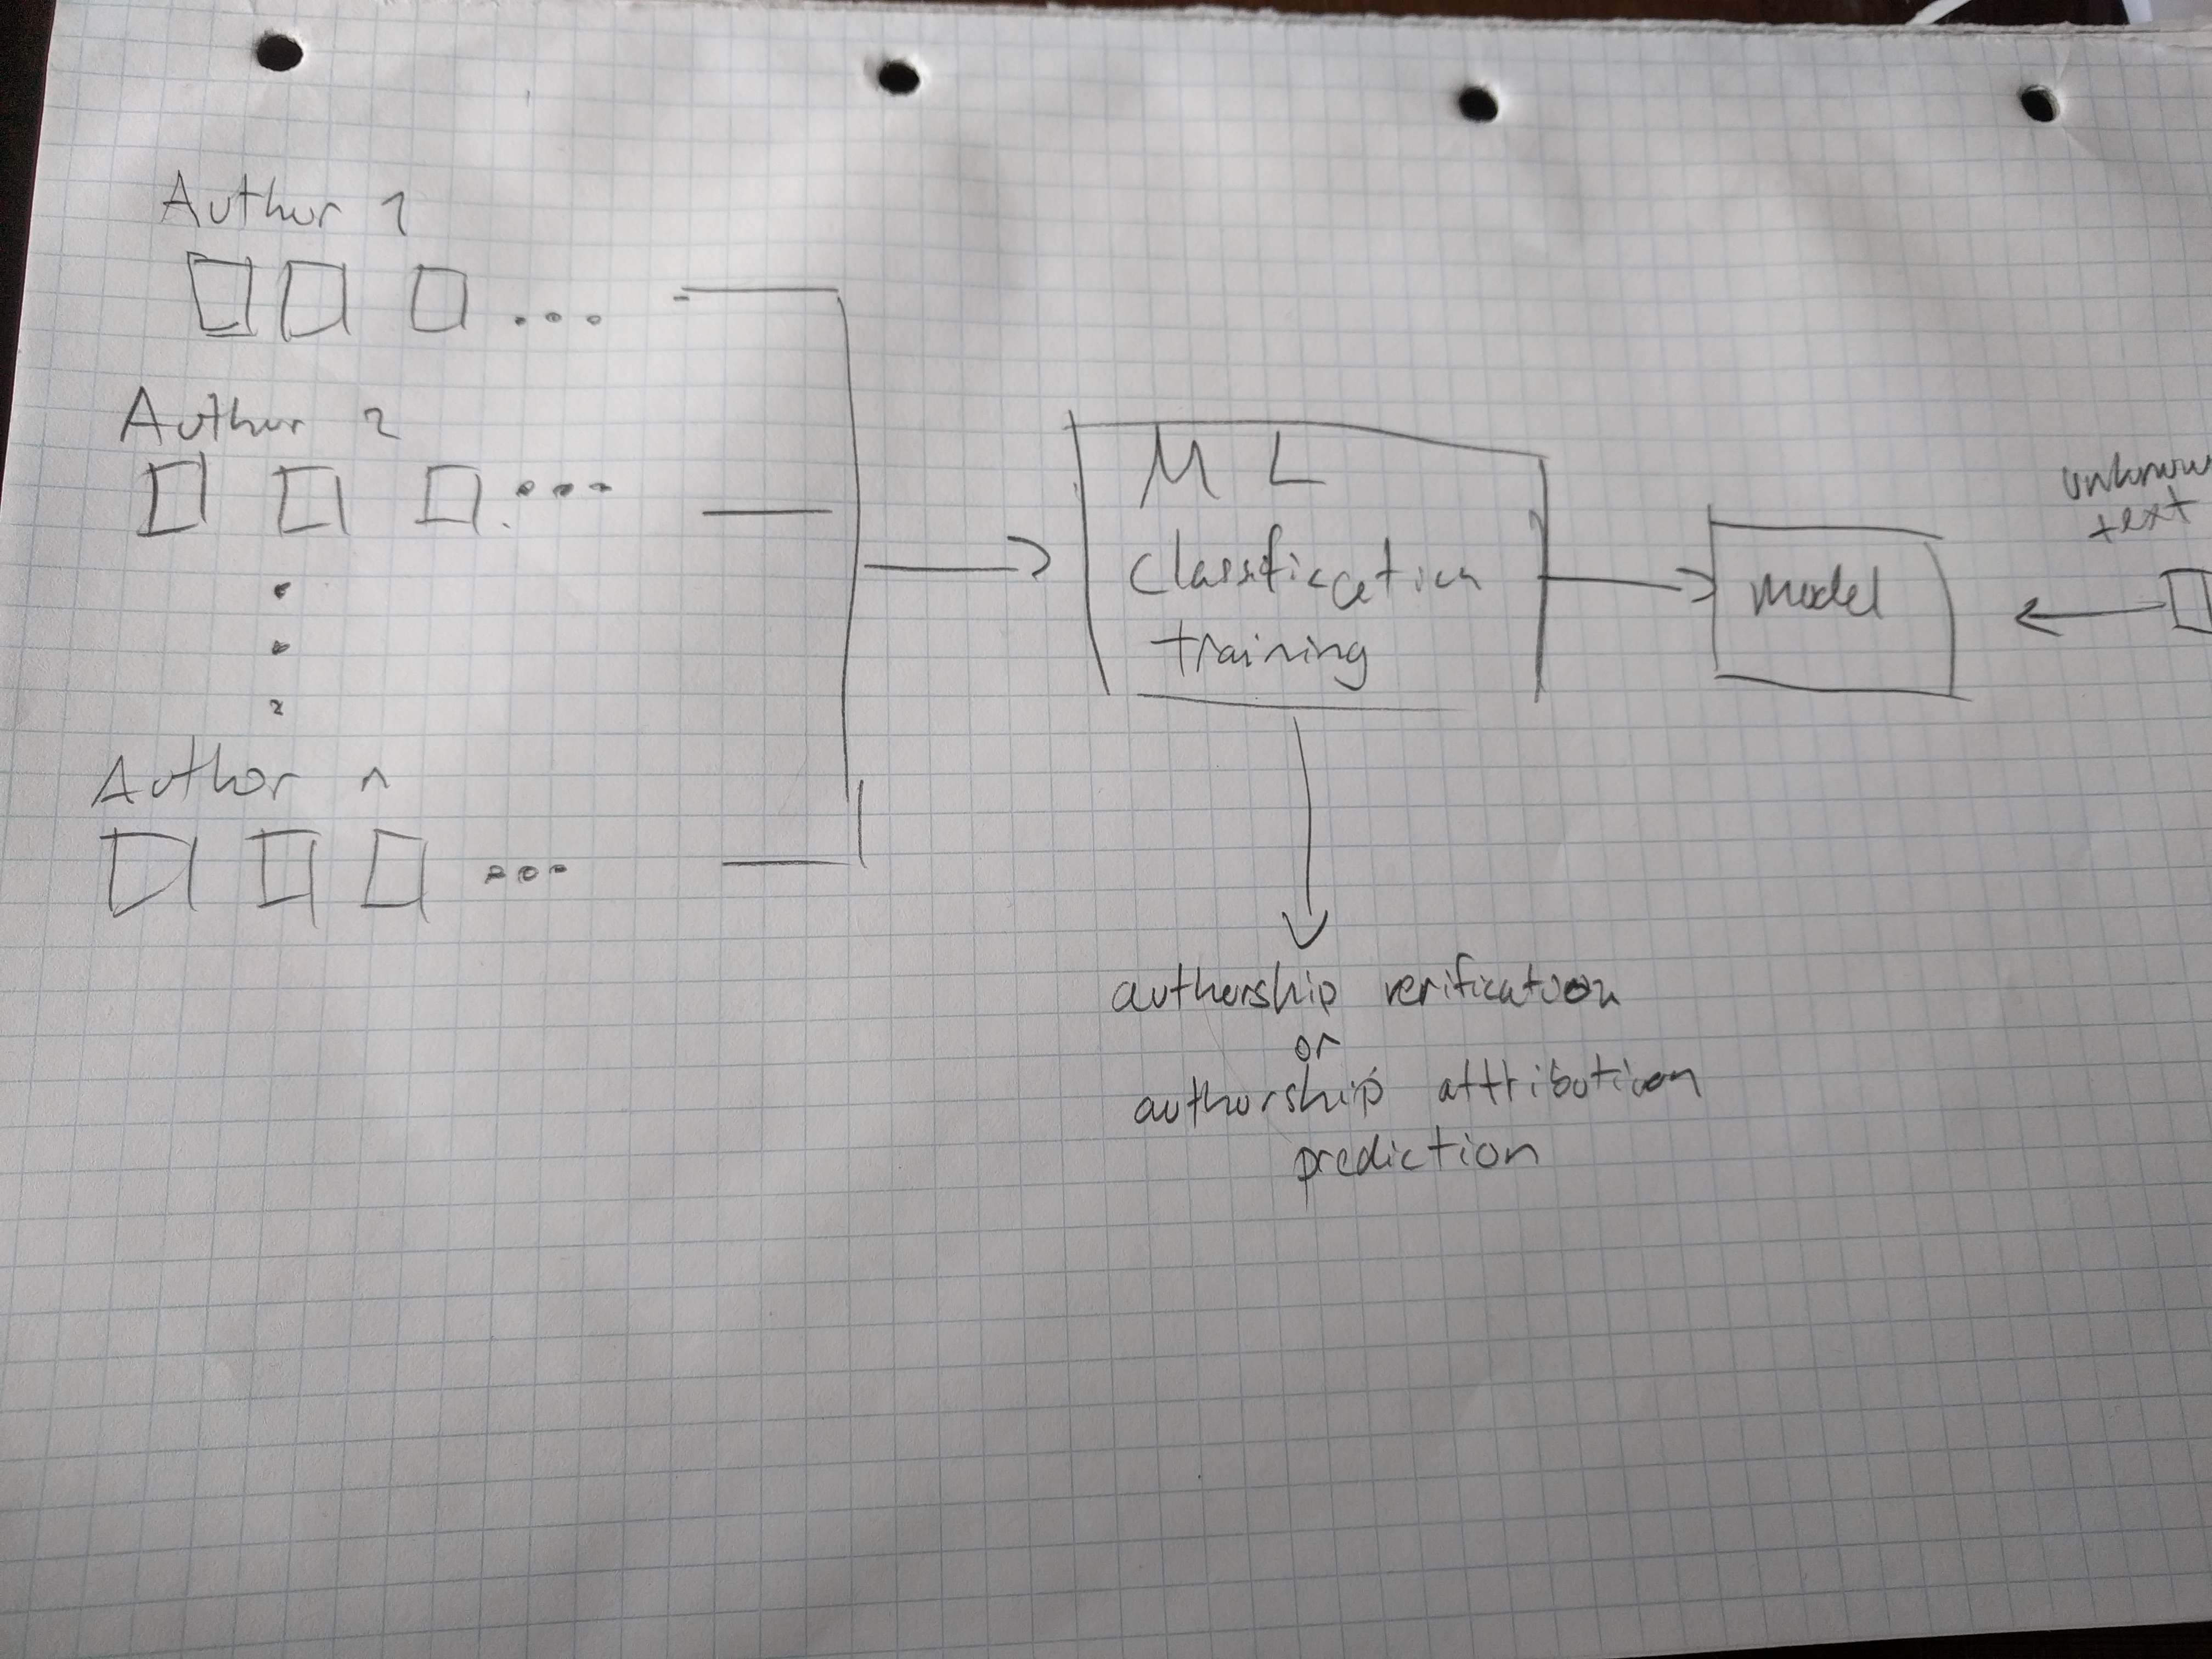 Author 1
Author 2
Author n
ML
classification
training
model
unknow
text
authorship verification
or
authorship attribution
prediction